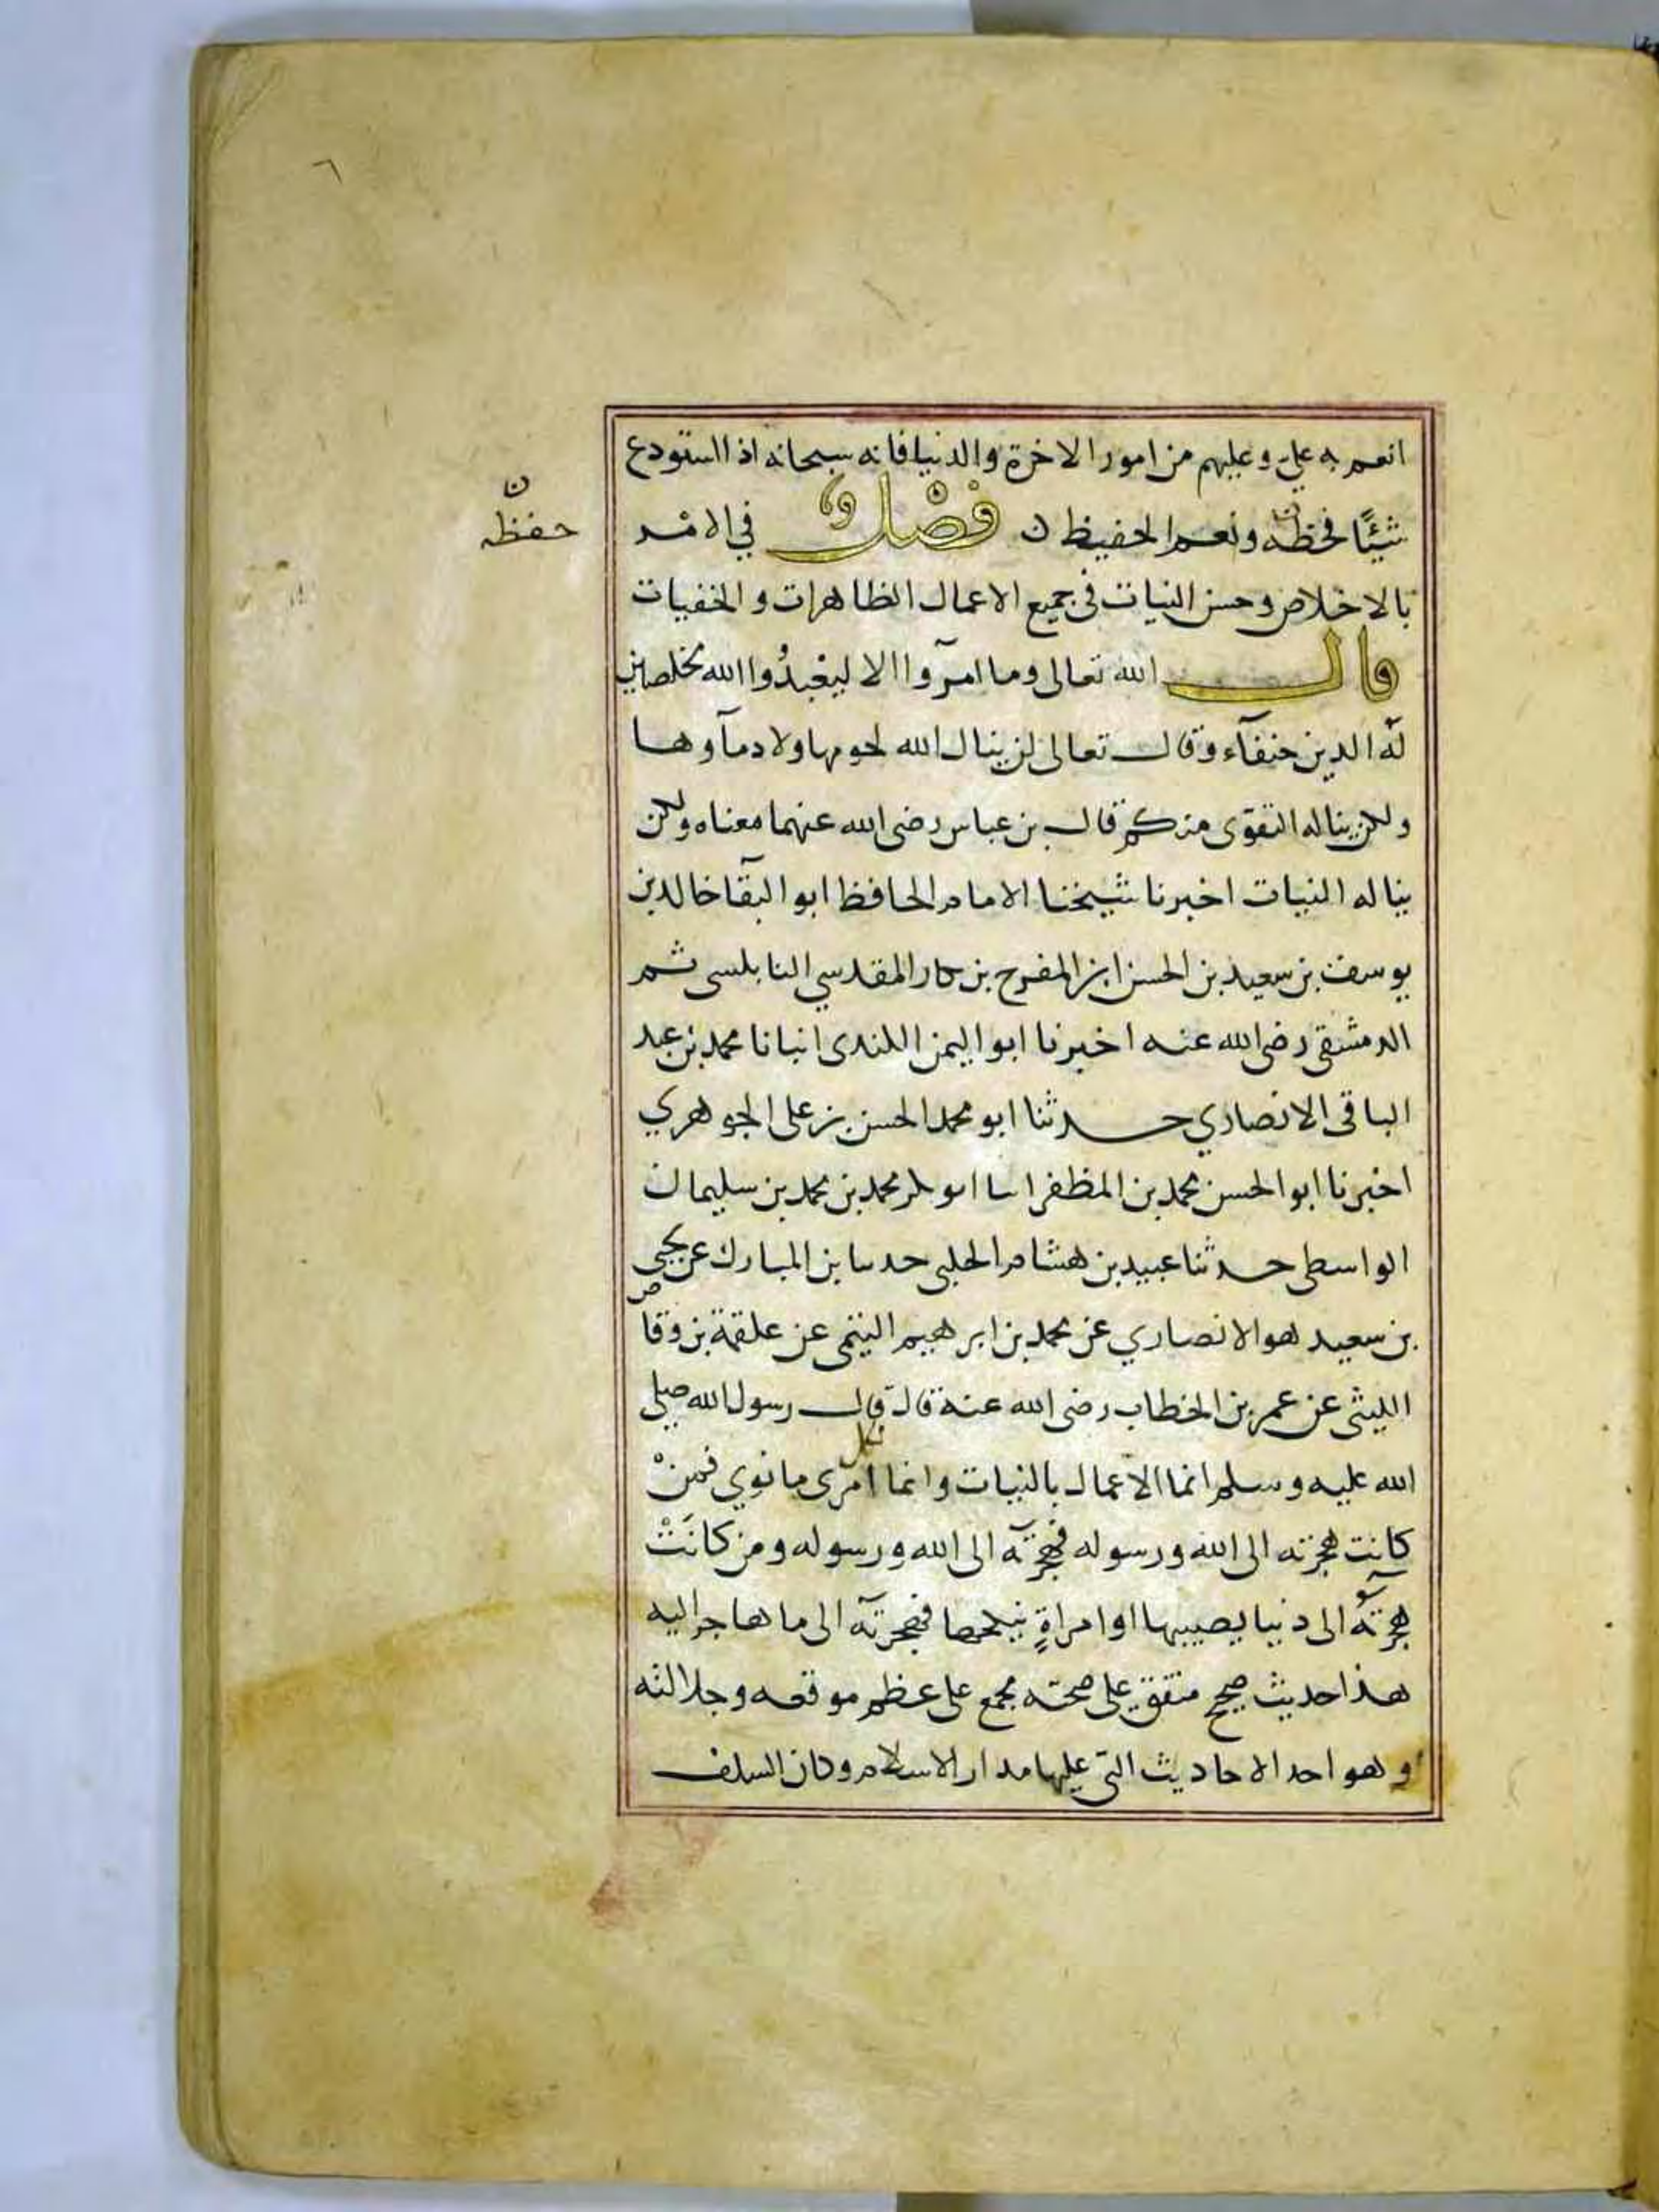 ٦
انعم به علي وعليهم من امور الاخرة والدنيا فانه سبحانه اذا استودع
شيئًا فحظه ونعم الحفيظ ن فصْل في الامْر
ن
حفظه
بالاخلاص وحسن النيات في جميع الاعمال الظاهرات والخفيات
قال الله تعالى وما امروا الا ليعْبدُوا الله مخلصين
له الدين حنفآء وقال تعالى لن ينال الله لحومها ولا دمآوها
ولكن يناله التقوى منكم قال بن عباس رضى الله عنهما معناه ولكن
يناله النيات اخبرنا شيخنا الامام الحافظ ابو البقآ خالد بن
يوسف بن سعيد بن الحسن ابن المفرح بن بكار المقدسي النابلسى ثم
الدمشقى رضى الله عنه اخبرنا ابو اليمن الكندى انبانا محمد بن عبد
الباقى الانصاري حدثنا ابو محمد الحسن بن على الجوهري
اخبرنا ابو الحسن محمد بن المظفر انبا ابو بكر محمد بن محمد بن سليمان
الواسطى حدثنا عبيد بن هشام الحلبى حدثنا بن المبارك عن يحيى
بن سعيد هو الانصاري عن محمد بن ابرهيم التيمى عن علقمة بن وقاص
الليثى عن عمر بن الخطاب رضى الله عنه قال قال رسول الله صلى
الله عليه وسلم انما الاعمال بالنيات وانما لكل امرى ما نوي فمنْ
كانت هجرته الى الله ورسوله فهجرته الى الله ورسوله ومن كانَتْ
هجرتُه الى دنيا يصيبها او امراةٍ ينكحها فهجرته الى ما هاجر اليه
هذا حديث صحيح متفق على صحته مجمع على عظم موقعه وجلالته
وهو احد الاحاديث التى عليها مدار الاسلام وكان السلف